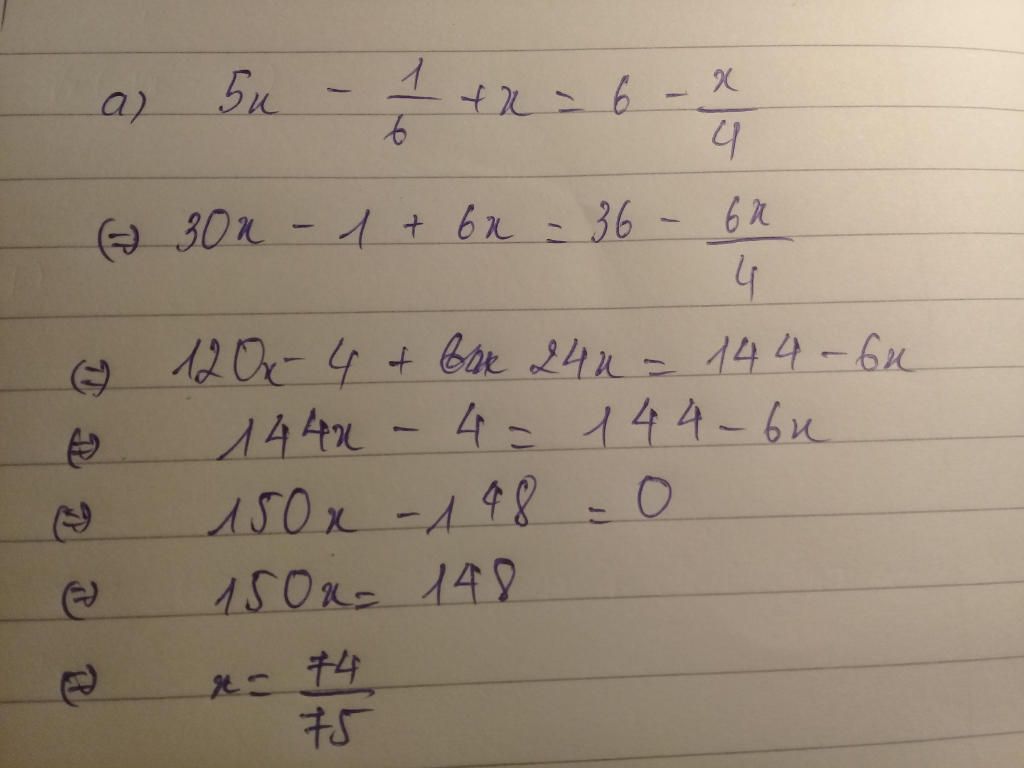 a) 5x - 1/6 + x = 6 - x/4
(=) 30x - 1 + 6x = 36 - 6x/4
(=) 120x - 4 + 24x = 144 - 6x
(=) 144x - 4 = 144 - 6x
(=) 150x - 148 = 0
(=) 150x = 148
(=) x = 74/75